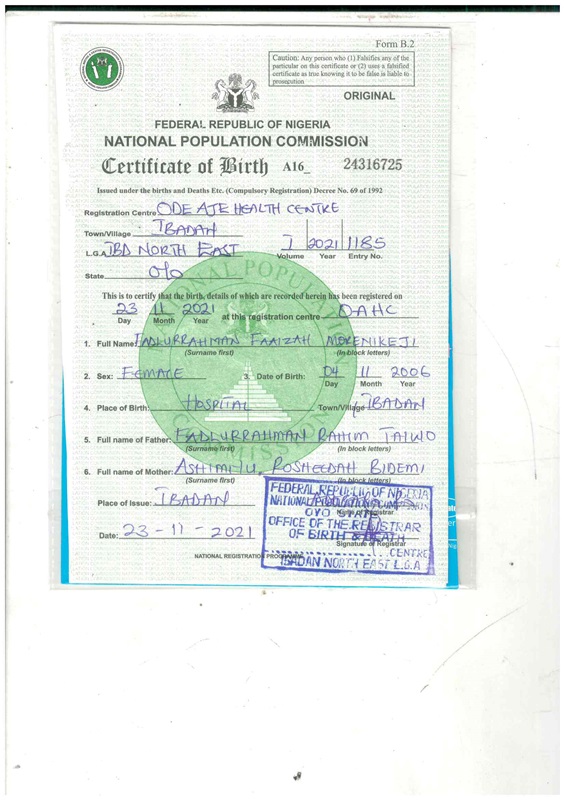 Form B.2
Caution: Any person who (1) Falsifies any of the
particular on this certificate or (2) uses a falsified
certificate as true knowing it to be false is liable to
prosecution
ORIGINAL
FEDERAL REPUBLIC OF NIGERIA
NATIONAL POPULATION COMMISSION
Certificate of Birth A16_ 24316725
Issued under the births and Deaths Etc. (Compulsory Registration) Decree No. 69 of 1992
Registration Centre ODE AJE HEALTH CENTRE
Town/Village IBADAN
L.G.A IBD NORTH EAST I 2021 1185
Volume Year Entry No.
State O/O
This is to certify that the birth, details of which are recorded herein has been registered on
23 11 2021 at this registration centre OAHC
Day Month Year
1. Full Name: FADLURRAHMAN FAAIZAH MORENIKEJI
(Surname first) (In block letters)
2. Sex: FEMALE 3. Date of Birth: 04 11 2006
Day Month Year
4. Place of Birth: HOSPITAL Town/Village IBADAN
5. Full name of Father: FADLURRAHMAN RAHIM TAIWO
(Surname first) (In block letters)
6. Full name of Mother: ASHIMIYU, ROSHEEDAH BIDEMI
(Surname first) (In block letters)
Place of Issue: IBADAN
Name of Registrar
Date: 23-11-2021
Signature of Registrar
FEDERAL REPUBLIC OF NIGERIA
NATIONAL POPULATION COMMISSION
OYO STATE
OFFICE OF THE REGISTRAR
OF BIRTH & DEATH
CENTRE
IBADAN NORTH EAST L.G.A
NATIONAL REGISTRATION PROGRAMME
NATIONAL POPULATION
COMMISSION